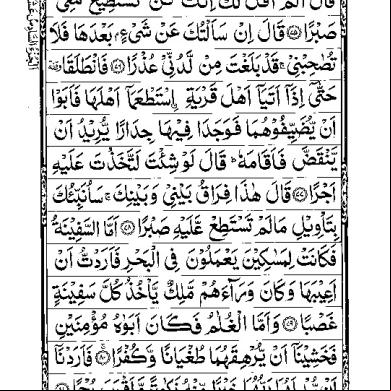 قَالَ اَلَمْ اَقُلْ لَّكَ اِنَّكَ لَنْ تَسْتَطِيْعَ مَعِيَ
صَبْرًا ﴿۷۵﴾ قَالَ اِنْ سَاَلْتُكَ عَنْ شَيْءٍۭ بَعْدَهَا فَلَا
تُصٰحِبْنِيْ ۚ قَدْ بَلَغْتَ مِنْ لَّدُنِّيْ عُذْرًا ﴿۷۶﴾ فَانْطَلَقَا ۥ
حَتّٰۤى اِذَاۤ اَتَيَاۤ اَهْلَ قَرْيَةِ ِۨاسْتَطْعَمَاۤ اَهْلَهَا فَاَبَوْا
اَنْ يُّضَيِّفُوْهُمَا فَوَجَدَا فِيْهَا جِدَارًا يُّرِيْدُ اَنْ
يَّنْقَضَّ فَاَقَامَهٗ ؕ قَالَ لَوْ شِئْتَ لَتَّخَذْتَ عَلَيْهِ
اَجْرًا ﴿۷۷﴾ قَالَ هٰذَا فِرَاقُ بَيْنِيْ وَبَيْنِكَ ۚ سَاُنَبِّئُكَ
بِتَاْوِيْلِ مَا لَمْ تَسْتَطِعْ عَّلَيْهِ صَبْرًا ﴿۷۸﴾ اَمَّا السَّفِيْنَةُ
فَكَانَتْ لِمَسٰكِيْنَ يَعْمَلُوْنَ فِي الْبَحْرِ فَاَرَدْتُّ اَنْ
اَعِيْبَهَا وَكَانَ وَرَآءَهُمْ مَّلِكٌ يَّاْخُذُ كُلَّ سَفِيْنَةٍ
غَصْبًا ﴿۷۹﴾ وَاَمَّا الْغُلٰمُ فَكَانَ اَبَوٰهُ مُؤْمِنَيْنِ
فَخَشِيْنَاۤ اَنْ يُّرْهِقَهُمَا طُغْيَانًا وَّكُفْرًا ﴿۸۰﴾ فَاَرَدْنَاۤ